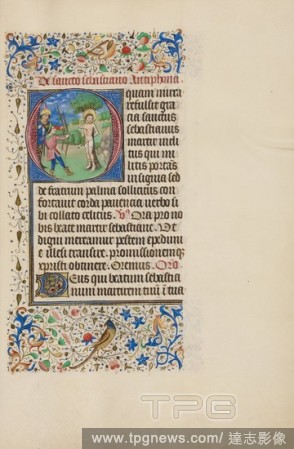 De sancto sebastiano Antiphona
O quam mira
refulsit gra
cia sanctus
sebastianus
martir incli
tus qui mi
litis portas
insignia sed
de fratrum palma sollicitus con
fortauit corda pauencia verbo si
bi collato celitus. V Ora pro no
bis beate martir sebastiane. Ut
digni mereamur pestem epedimi
e illesi transire. et promissionem
xpristi obtinere. Oremus. Oro
Deus qui beatum sebastia
num martirem tuum i tua
TPG
www.tpgnews.com / 達志影像